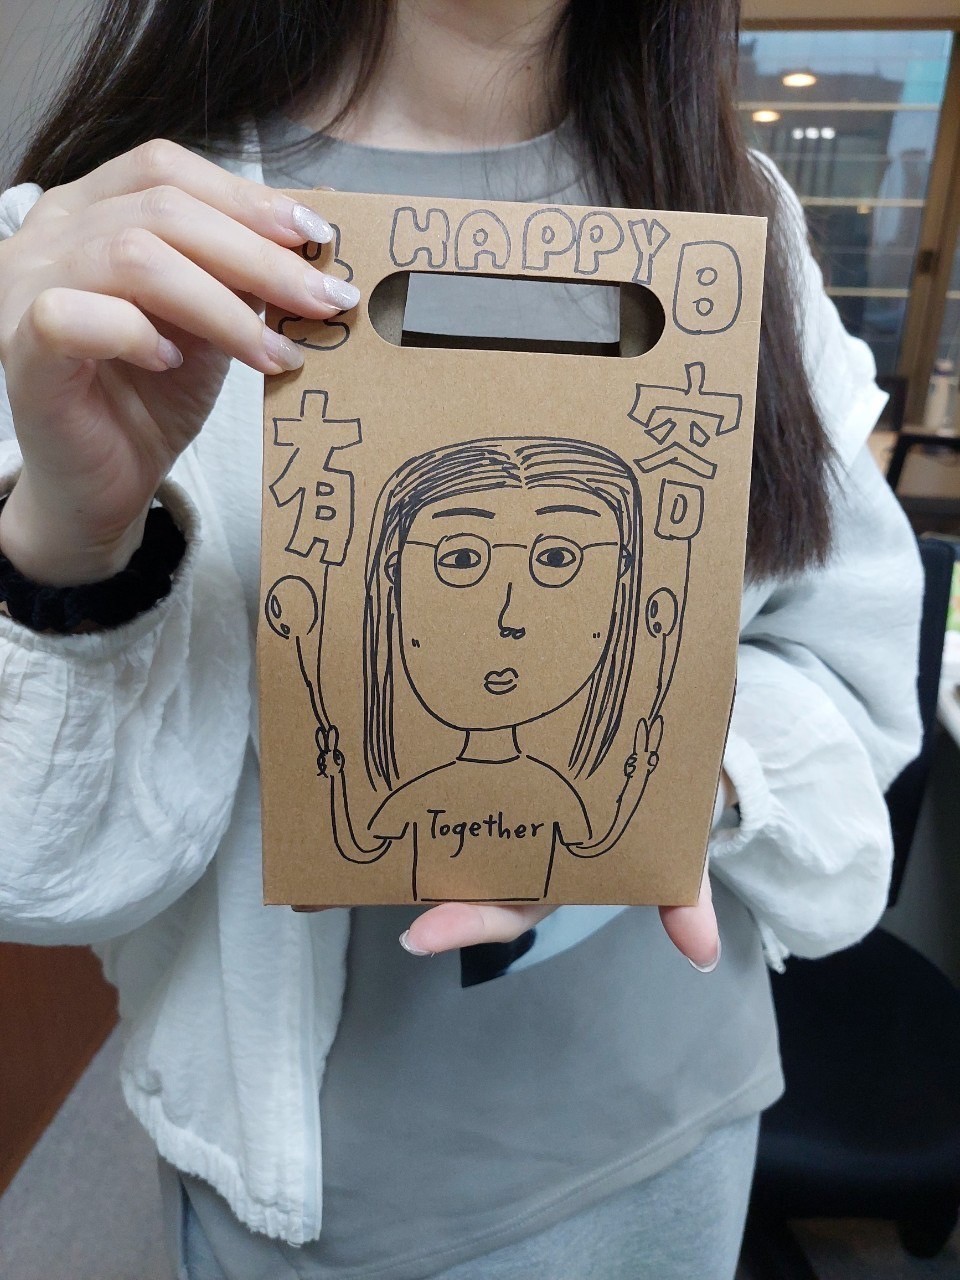 HAPPY
日
有
容
Together